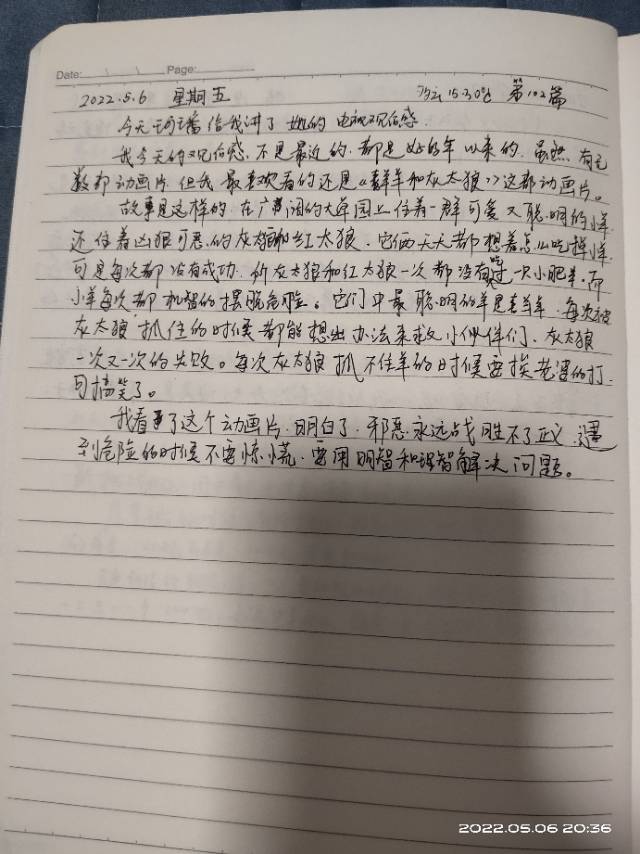 Date: Page:
2022.5.6 星期五 15-30℃ 第102篇
今天 给我讲了她的电视观后感
我今天的观后感,不是最近的,都是好的年以来的,虽然有无
数部动画片,但我最喜欢看的还是《羊和灰太狼》这部动画片。
故事是这样的,在广阔的大草园上住着一群可爱又聪明的小羊
还住着凶狠可恶的灰太狼和红太狼。它俩天天都想着怎么吃掉小羊
可是每次都没有成功,灰太狼和红太狼一次都没有吃过一只小肥羊,而
小羊每次都机智的摆脱危险。它们中最聪明的羊是喜羊羊,每次被
灰太狼抓住的时候都能想出办法来救小伙伴们、灰太狼
一次又一次的失败。每次灰太狼抓不住羊的时候要挨老婆的打,
可搞笑了。
我看了这个动画片,明白了,邪恶永远战胜不了正义,遇
到危险的时候不要惊慌,要用明智和理智解决问题。
2022.05.06 20:36